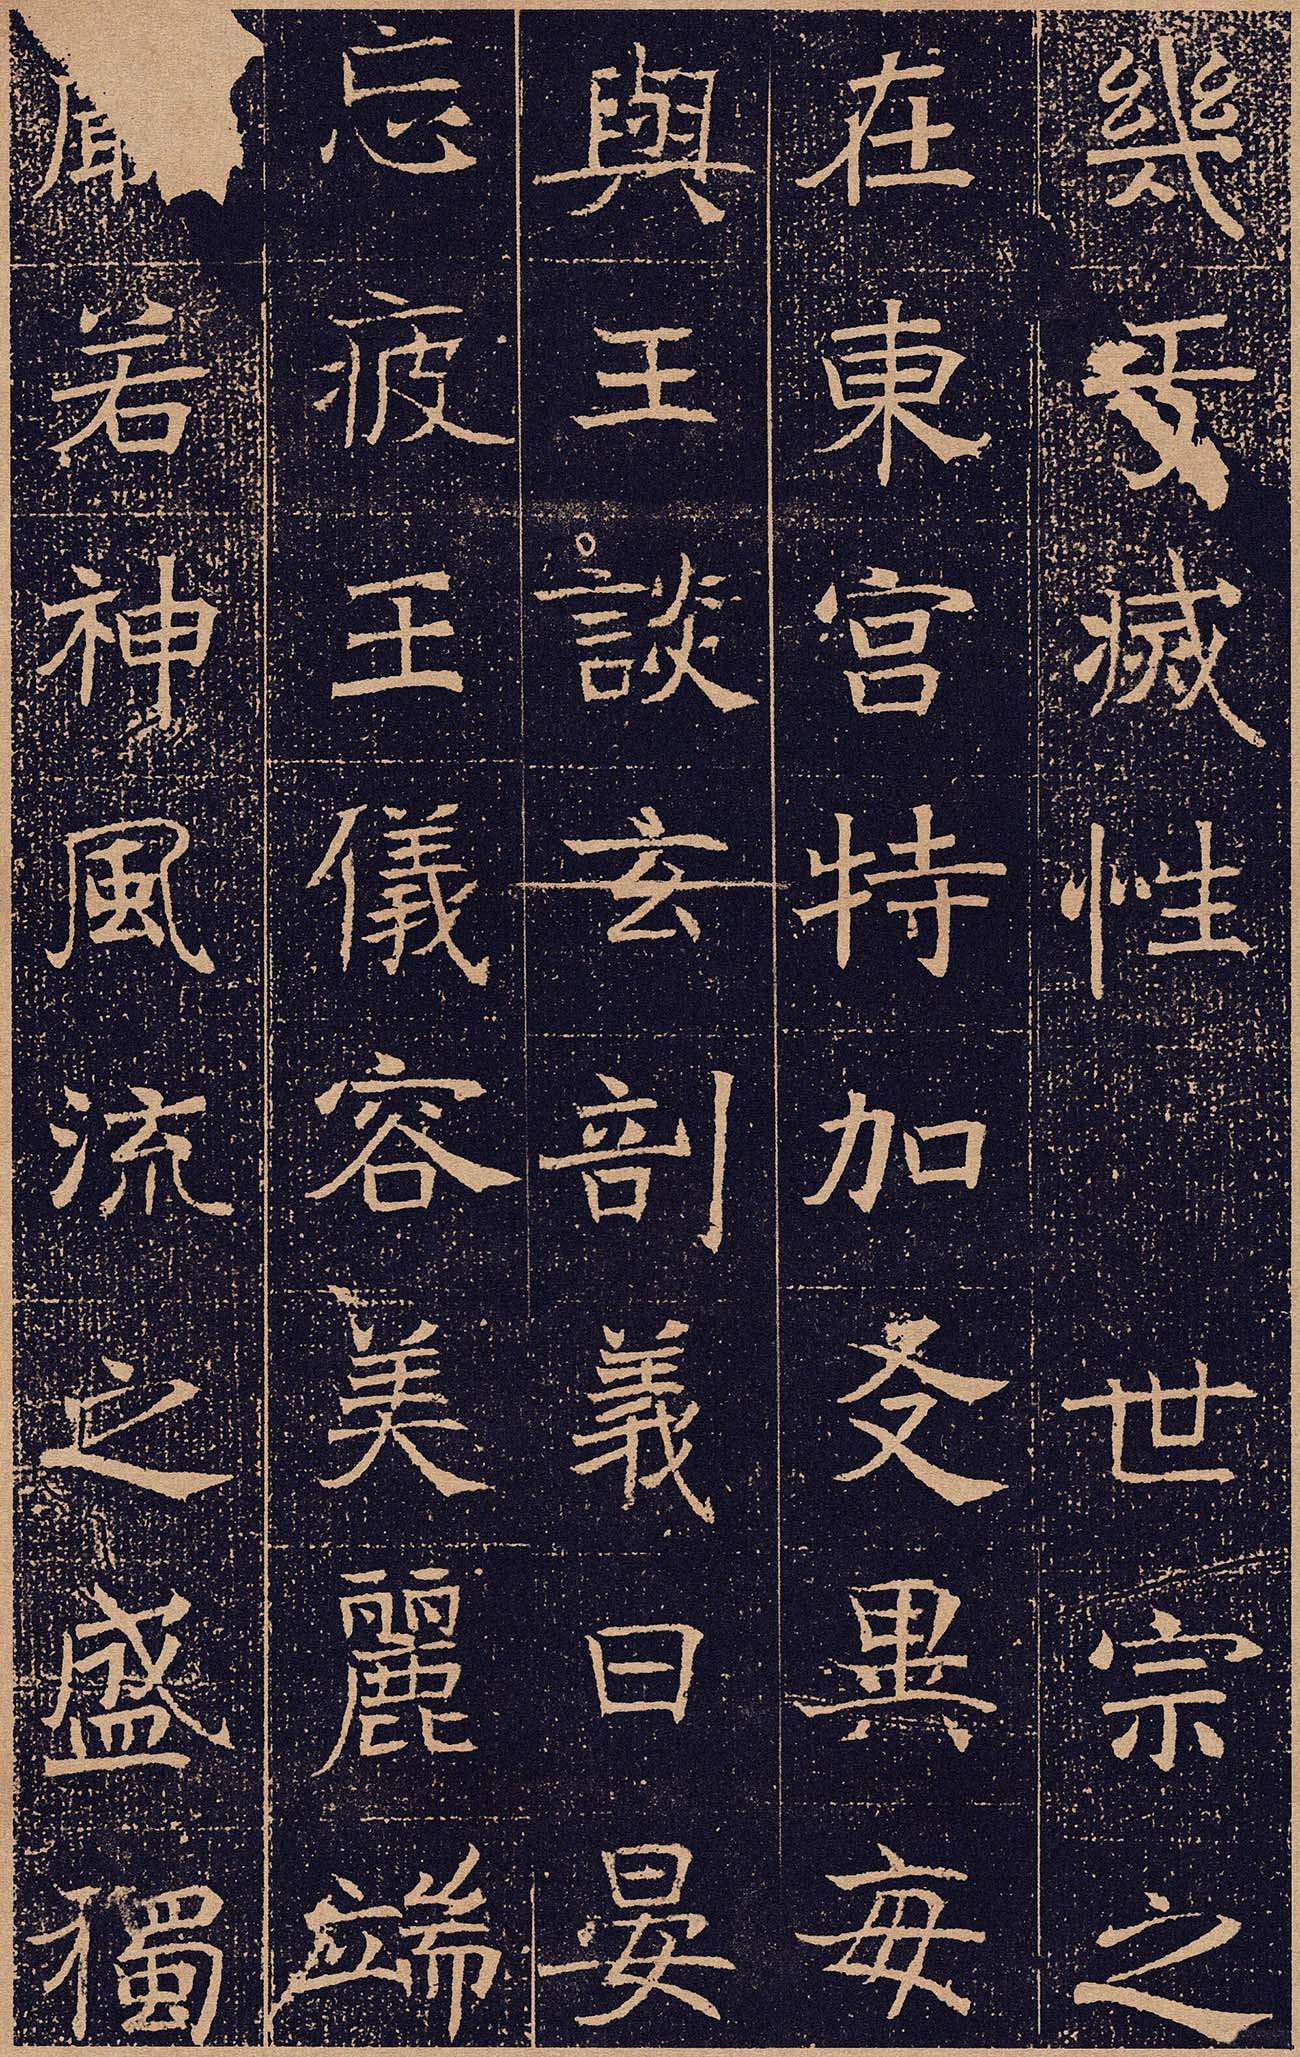 幾于滅性 世宗之
在東宮特加友異每
與王談玄剖義日晏
忘疲王儀容美麗端
若神風流之盛獨